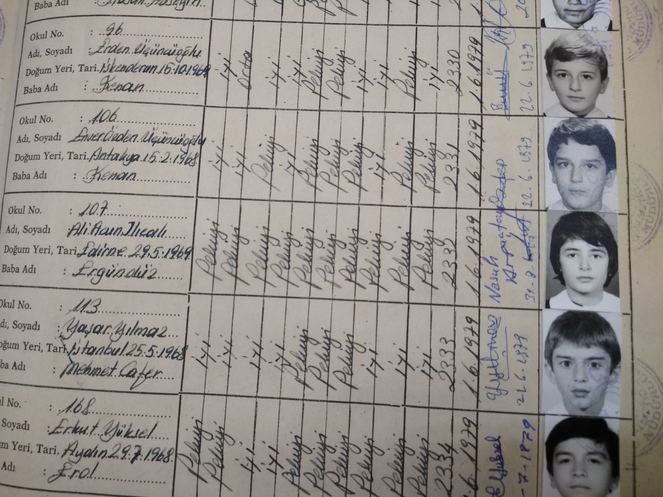 Baba Adı : Hasan Hüseyin
Okul No. : 96
Adı, Soyadı : Erden Üçüncüoğlu
Doğum Yeri, Tari. İskenderun 15.10.1969
Baba Adı : Kenan
İyi Orta İyi İyi Pekiyi Pekiyi İyi İyi Pekiyi İyi 2330 1.6.1979
22.6.1979
Okul No. : 106
Adı, Soyadı Enver Önden Üçüncüoğlu
Doğum Yeri, Tari. Antakya 15.2.1968
Baba Adı : Kenan
İyi İyi Pekiyi İyi Pekiyi Pekiyi Pekiyi İyi Pekiyi Pekiyi 2331 1.6.1979
22.6.1979
Okul No. : 107
Adı, Soyadı
Doğum Yeri, Tari. Edirne 29.5.1969
Baba Adı : Ergündüz
Pekiyi Pekiyi Pekiyi Pekiyi Pekiyi Pekiyi Pekiyi Pekiyi Pekiyi Pekiyi 2332 1.6.1979
Okul No. : 113
Adı, Soyadı : Yaşar Yılmaz
Doğum Yeri, Tari. İstanbul 25.5.1968
Baba Adı : Mehmet Cafer
İyi İyi İyi İyi Pekiyi Pekiyi Pekiyi İyi İyi İyi 2333 1.6.1979
Y Yılmaz
Okul No. : 168
Soyadı : Erkut Yüksel
Yeri, Tari. Aydın 29.7.1968
Adı : Erol
Pekiyi Pekiyi İyi İyi Pekiyi Pekiyi Pekiyi Pekiyi Pekiyi Pekiyi 2334 1.6.1979
E Yüksel
-7-1979